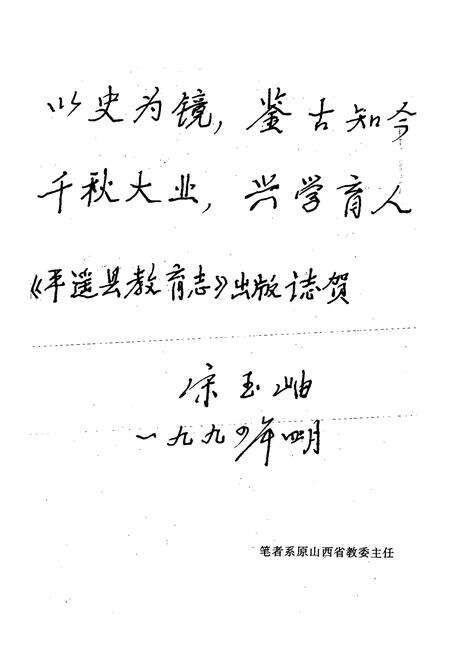 以史为镜，鉴古知今
千秋大业，兴学育人
《平遥县教育志》出版志贺
宋玉岫
一九九〇年四月
笔者系原山西省教委主任